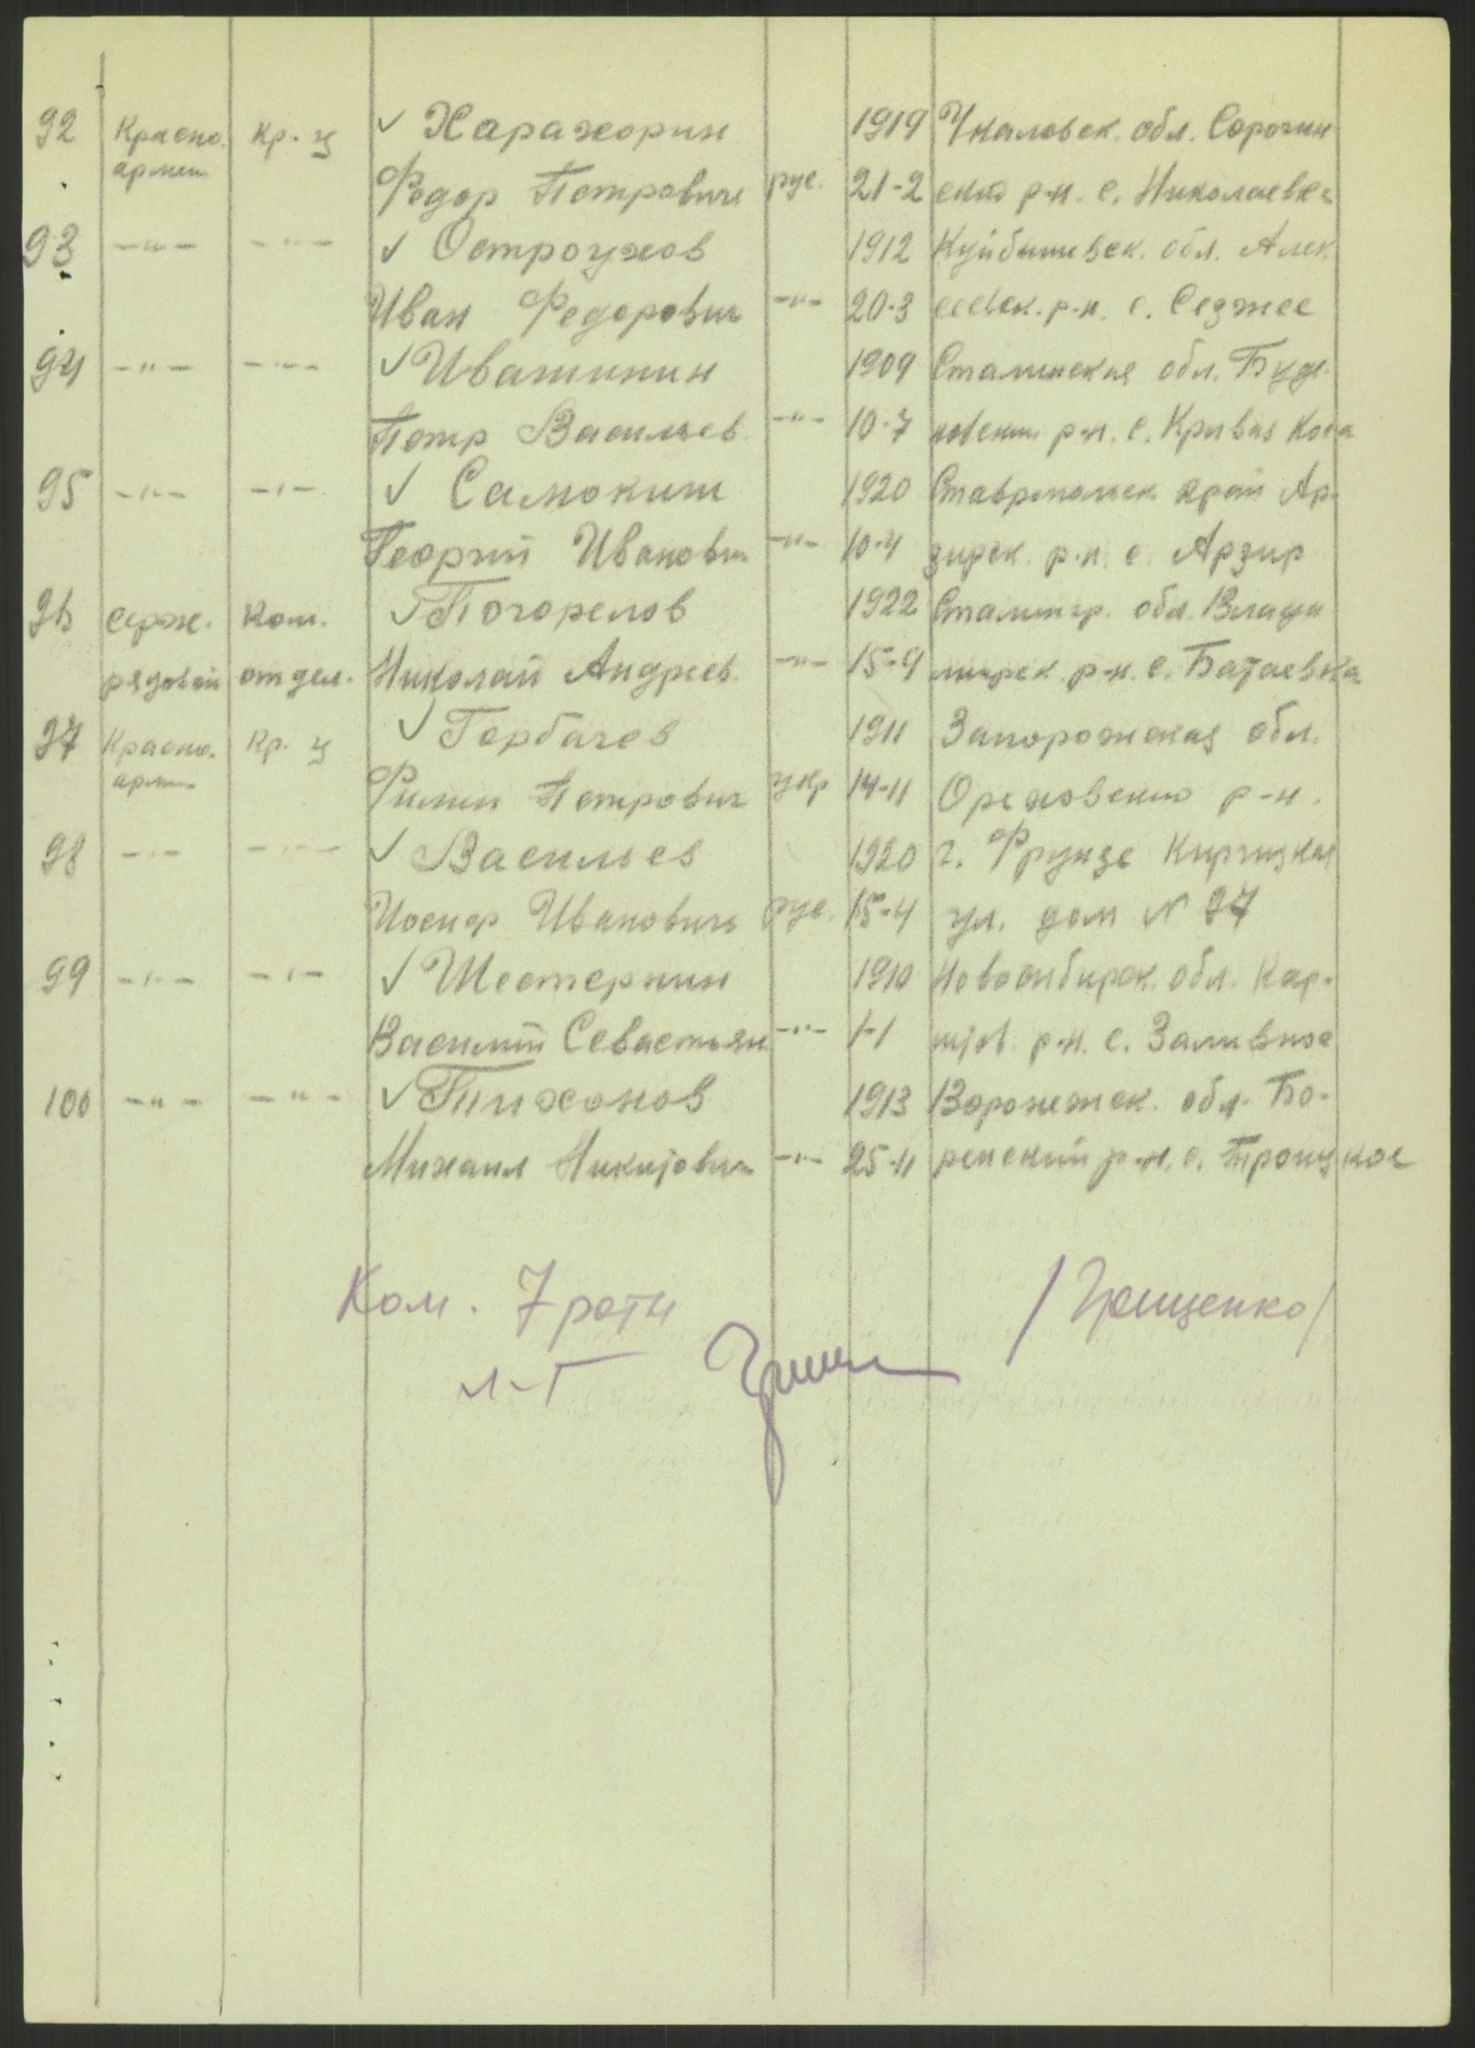 92 Красно. Кр. ц ✓ Харахорин 1919 Чкаловск. обл. Сорочин
армеец Федор Петрович рус. 21-2 ский р-н. с. Николаевка
93 -"- -"- ✓ Остроухов 1912 Куйбышевск. обл. Алек
Иван Федорович -"- 20-3 сеевск. р-н. с.
94 -"- -"- ✓ Ивашинин 1909 Сталинская обл. Буде
Петр Васильев. -"- 10-7 новский р-н. с. Кривая Коса
95 -"- -"- ✓ Самокиш 1920 Ставропольск край Ар-
Георгий Иванович -"- 10-4 зирск. р-н. с. Арзир
96 серж. Ком. ✓ Погорелов 1922 Сталингр. обл. Влади
рядовой отдел. Николай Андреев. -"- 15-9 мирск. р-н. с. Батаевка
97 Красно. Кр. ц ✓ Горбачев 1911 Запорожская обл.
арм Филип Петрович укр 14-11 Ореховский р-н.
98 -"- -"- ✓ Васильев 1920 г. Фрунзе Киргизкая
Иосиф Иванович рус. 15-4 ул. дом N 27
99 -"- -"- ✓ Шестернин 1910 Новосибирск. обл. Кар-
Василий Севастьян -"- 1-1 р-н. с. Заливное
100 -"- -"- ✓ Тихонов 1913 Воронежск. обл. Бо-
Михаил Никитович -"- 25-11 ренский р-н. с. Троицкое
Ком. 7 роты /Грищенко/
л-т Грищ